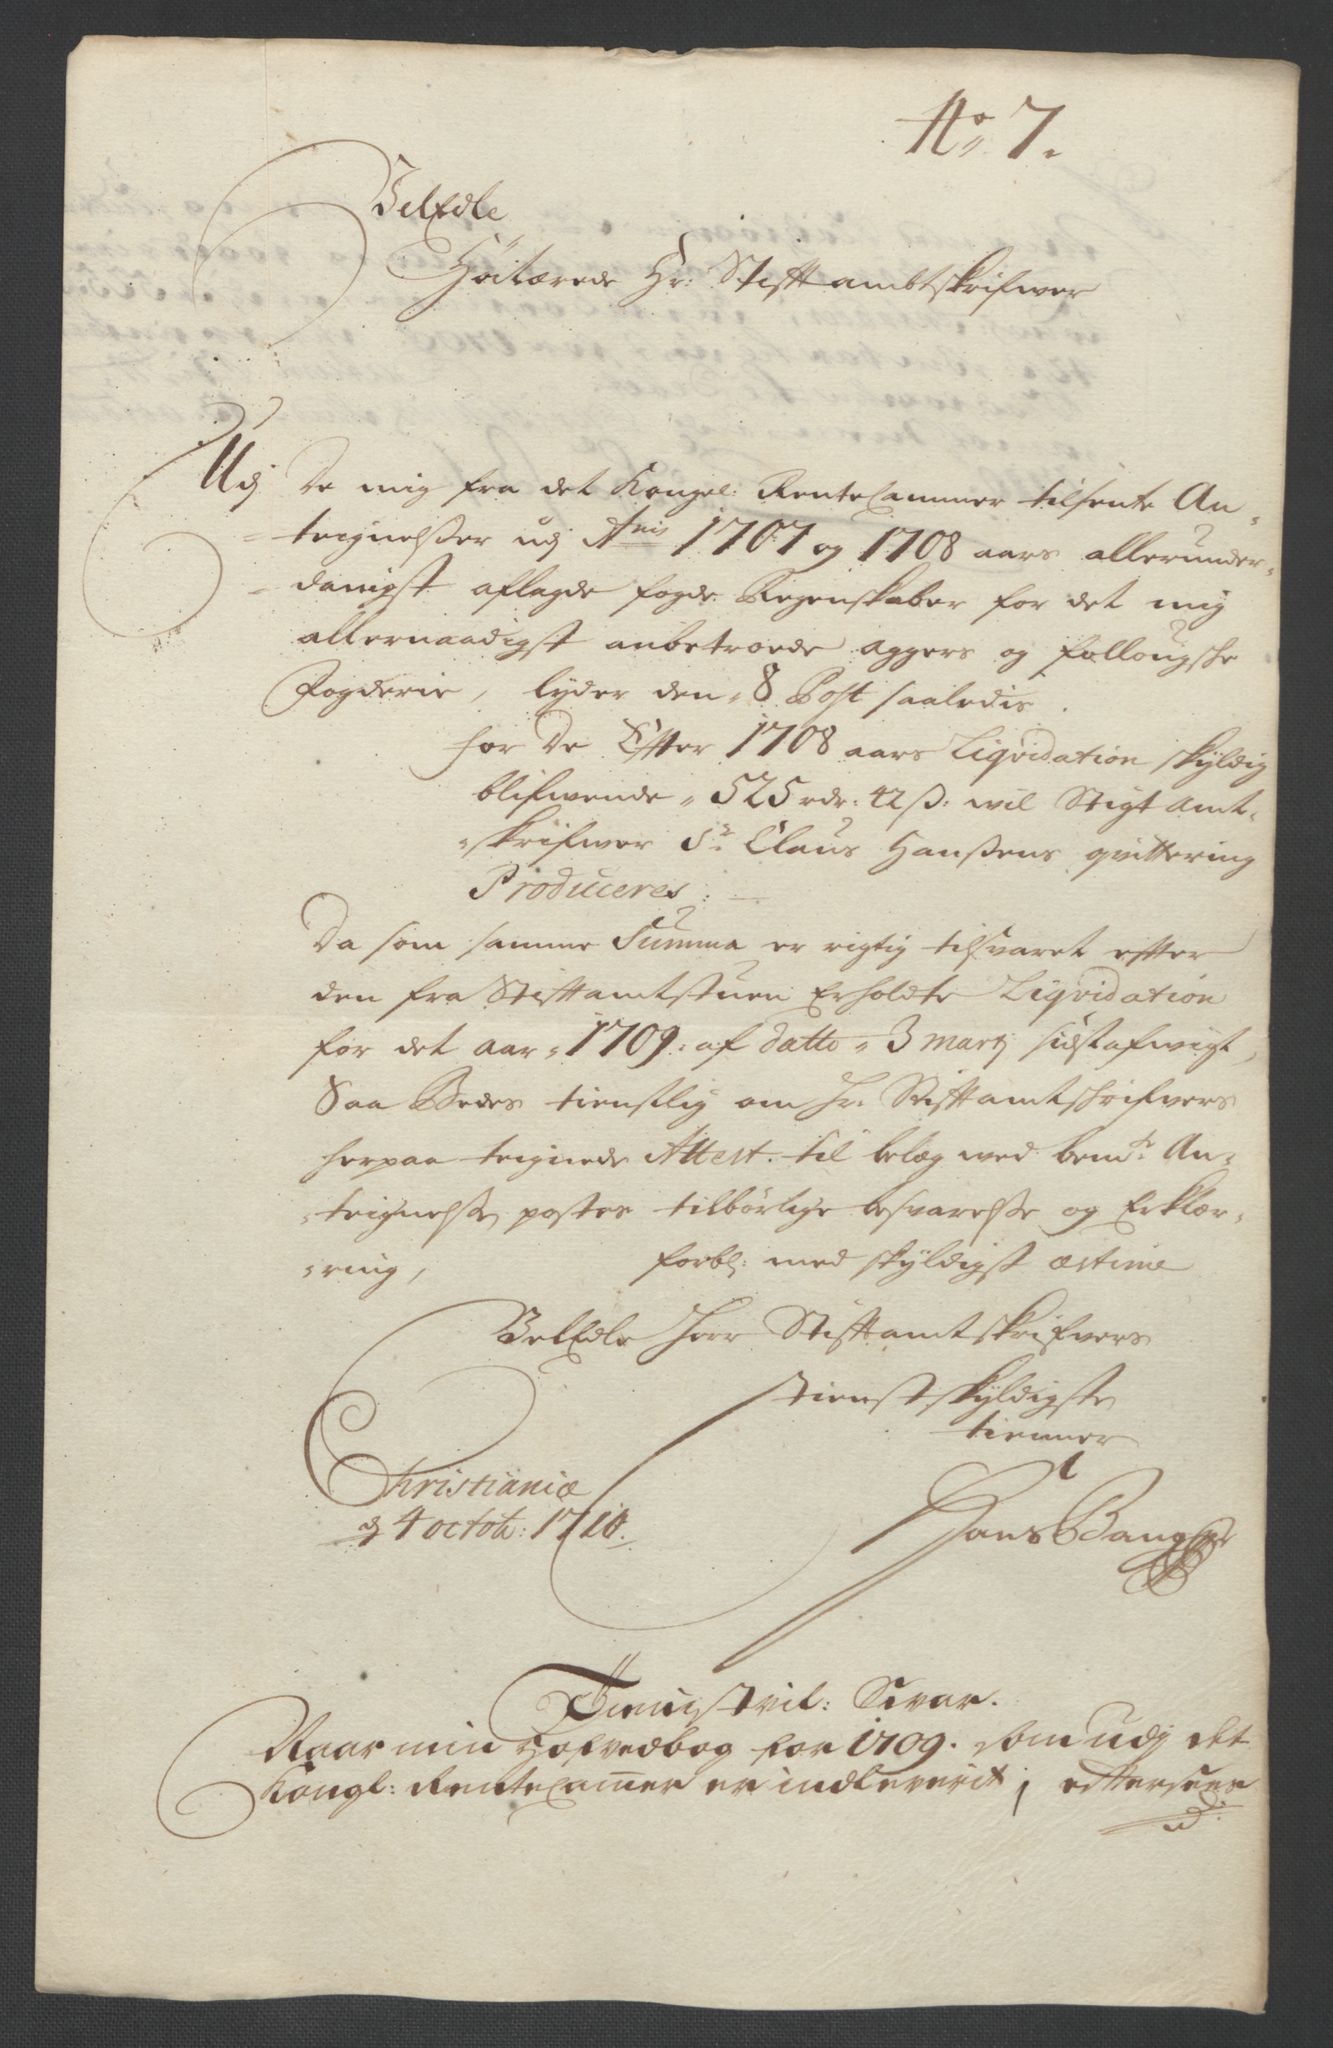 No 7.
VelEdle
Höitærede Hr: Stifftambtskrifwer
Udj De mig fra det Kongel: RenteCammer tilsente An-
tegnelsser udj Anis 1707 og 1708 aars allerunder-
danigst aflagde fogde Regenskaber for det mig
allernaadigst anbetroede Aggers og follougsche
Fogderie, lyder den 8 Post saaledis.
For De Effter 1708 aars Liqvidation skyldig
blifwende 525 rdr: 42 ß: wil Stigt Amt-
skrifwer Sr: Claus Hanssens qvittering
Produceres:
Da som samme Summa er rigtig tilsvaret effter
den fra Stifftamtstuen Erholdte Liqvidation
for det aar 1709: af datto 3 Martj sidstafwigt,
Saa Bedes tienstlig om Hr: Stifftamtschrifvers
herpaa tegnede Attest. til belæg ved bemte: An-
tegnelsse postes tilbørlige besvarelsse og Erklær-
ring, forbl: med skyldigst æstime
VelEdle Herr Stifftamtskrifvers
tienstskyldigste
tienner
Christianiæ
d 4 octob: 1710. Hans Bang
Tienistvil: Svar.
Naar min Hofvedbog for 1709. som udj det
Kongl: RenteCamer er indleverit, efftersees